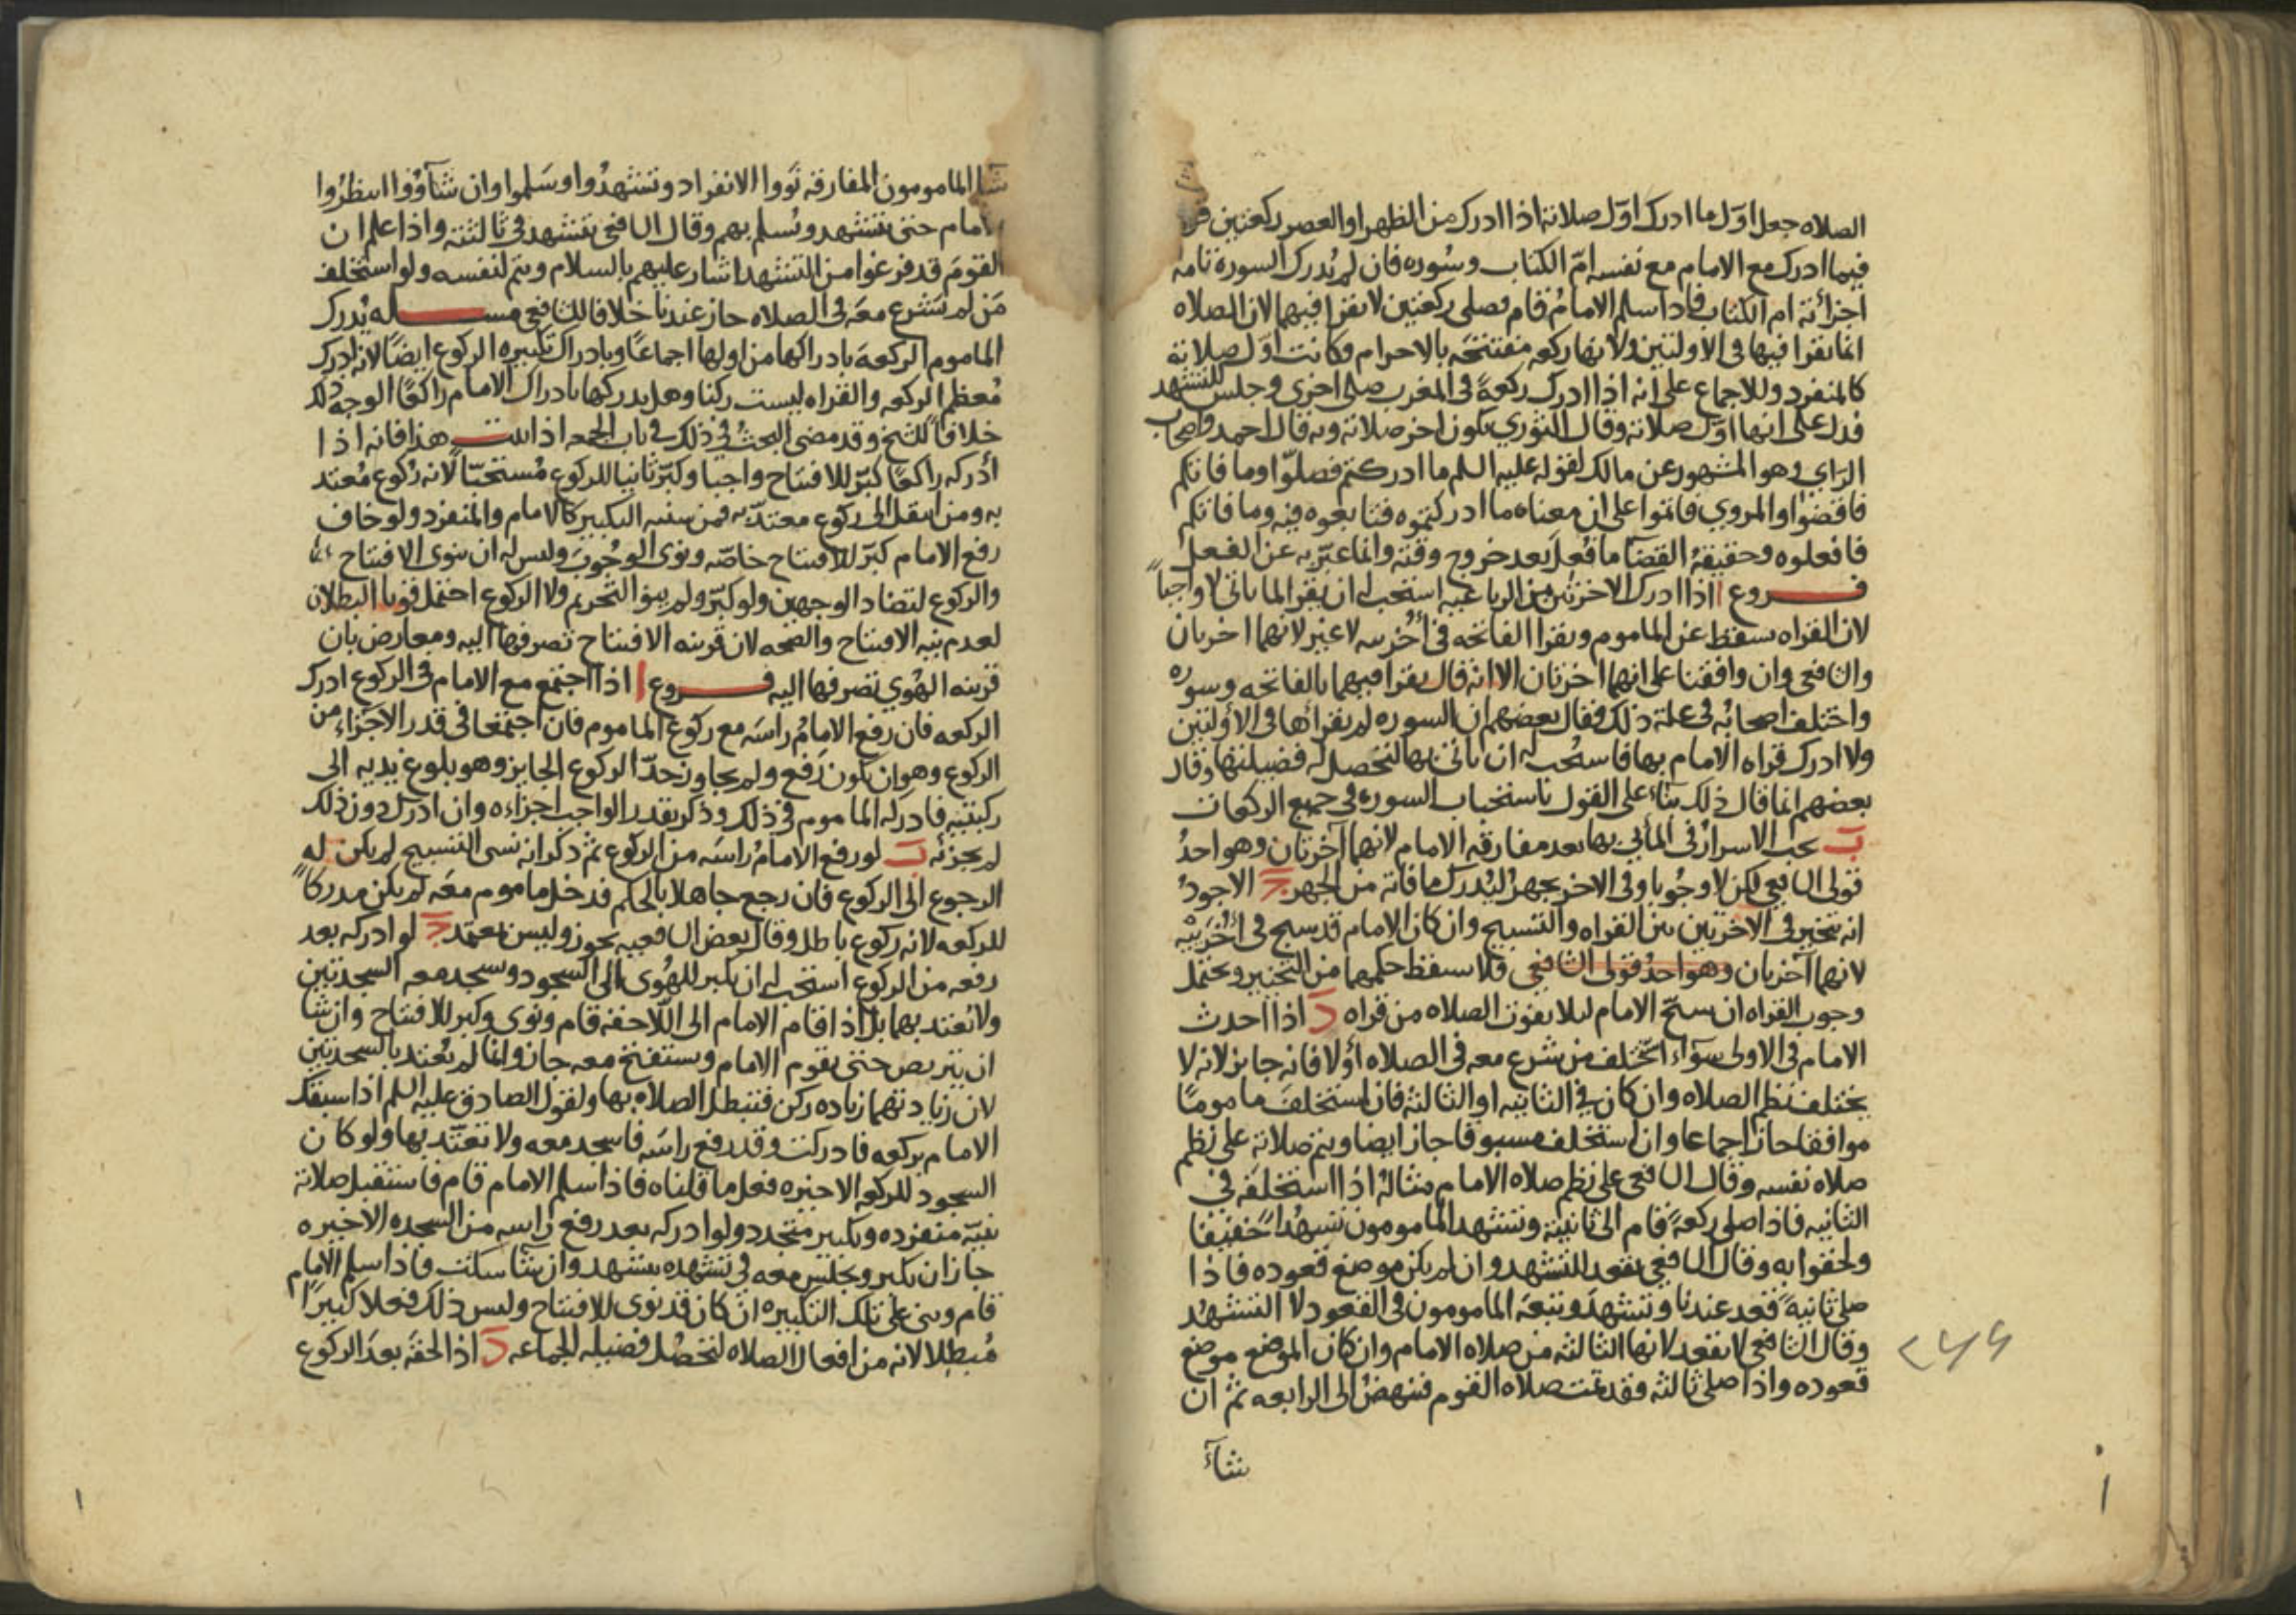 الصلاه جعل اول ما ادرك اول صلاته اذا ادرك من الظهر او العصر ركعتين قرا
فيما ادرك مع الامام مع نفسه ام الكتاب وسوره فان لم يدرك السورة تامة
اجزأته ام الكتاب فاذا سلم الامام قام فصلى ركعتين لا يقرا فيهما لان الصلاه
انما يقرا فيها فى الاولتين ولانها ركعه مفتتحة بالاحرام وكانت اول صلاته
كالمنفرد وللاجماع على انه اذا ادرك ركعة فى المغرب صلى اخرى وجلس للتشهد
فدل على انها اول صلاته وقال الثوري يكون اخر صلاته وبه قال احمد واصحاب
الراي وهو المشهور عن مالك لقوله عليه السلم ما ادركتم فصلوا وما فاتكم
فاقضوا والمروي فاتموا على ان معناه ما ادركتموه فتابعوه فيه وما فاتكم
فافعلوه وحقيقة القضآ ما فعل بعد خروج وقته وانما عبر به عن الفعل
فروع ا اذا ادرك الاخرتين من الرباعيه استحب له ان يقرا لما ياتى لا واجبا
لان القراه سقط عن الماموم ويقرا الفاتحه فى أخرييه لا غير لانهما اخرتان
والشافعى وان وافقنا على انهما اخرتان الا انه قال يقرا فيهما بالفاتحه وسوره
واختلف اصحابه فى علة ذلك فقال بعضهم ان السوره لم يقرأها فى الأولتين
ولا ادرك قراه الامام بها فاستحب له ان ياتى بها لتحصل له فضيلتها وقال
بعضهم انما قال ذلك بناء على القول باستحباب السوره فى جميع الركعات
ب يجب الاسرار فى الماتى بها بعد مفارقه الامام لانهما آخرتان وهو احد
قولى الشافعى لكن لا وجوبا وفى الاخر يجهر ليدرك ما فاته من الجهر ج الاجود
انه يتخير فى الاخرتين بين القراه والتسبيح وان كان الامام قد سبح فى أخرييه
لانهما آخرتان وهو احد قولى الشافعى فلا يسقط حكمهما من التخيير ويحتمل
وجوب القراه ان سبح الامام ليلا يفوت الصلاه من قراه د اذا احدث
الامام فى الاولى سوآء استخلف من شرع معه فى الصلاه أولا فانه جايز لانه لا
يختلف نظم الصلاه وان كان فى الثانيه او الثالثة فان استخلف ماموما
موافقا جاز اجماعا وان استخلف مسبوقا جاز ايضا ويتم صلاته على نظم
صلاه نفسه وقال الشافعى على نظم صلاه الامام مثاله اذا استخلفه فى
الثانيه فاذا صلى ركعة قام الى ثانيته وتشهد المامومون تشهدا خفيفا
ولحقوا به وقال الشافعى يقعد للتشهد وان لم يكن موضع قعوده فاذا
صلى ثانية قعد عندنا وتشهد وتبعه المامومون فى القعود لا التشهد
وقال الشافعى لا يقعد لانها الثالثه من صلاه الامام وان كان الموضع موضع
قعوده واذا صلى ثالثه وقد تمت صلاه القوم فينهض الى الرابعه ثم ان
شآء
٢٤٤
شا المامومون المفارقه نووا الانفراد وتشهدوا وسلموا وان شآؤوا انتظروا
الامام حتى يتشهد ويسلم بهم وقال الشافعى يتشهد فى ثالثته واذا علم ان
القوم قد فرغوا من التشهد اشار عليهم بالسلام ويتم لنفسه ولو استخلف
من لم يشرع معه فى الصلاه جاز عندنا خلافا للشافعى مسـله يدرك
الماموم الركعه بادراكها من اولها اجماعا وبادراك تكبيره الركوع ايضا لانه ادرك
معظم الركعه والقراه ليست ركنا وهل يدركها بادراك الامام راكعا الوجه ذلك
خلافا للشيخ وقد مضى البحث فى ذلك فى باب الجمعه اذا ثبت هذا فانه اذا
أدركه راكعا كبر للافتتاح واجبا وكبر ثانيا للركوع مستحبا لانه ركوع معتد
به ومن انتقل الى ركوع معتد به فمن سننه التكبير كالامام والمنفرد ولو خاف
رفع الامام كبر للافتتاح خاصه ونوى الوجوب وليس له ان ينوى الافتتاح
والركوع لتضاد الوجهين ولو كبر ولم ينو التحريم ولا الركوع احتمل قويا البطلان
لعدم نيه الافتتاح والصحه لان قرينه الافتتاح تصرفها اليه ومعارض بان
قرينه الهوي تصرفها اليه فروع ا اذا اجتمع مع الامام فى الركوع ادرك
الركعه فان رفع الامام راسه مع ركوع الماموم فان اجتمعا فى قدر الاجزاء من
الركوع وهو ان يكون رفع ولم يجاوز حد الركوع الجايز وهو بلوغ يديه الى
ركبتيه فادركه الماموم فى ذلك وذكر بقدر الواجب اجزاءه وان ادرك دون ذلك
لم يجزئه ب لو رفع الامام راسه من الركوع ثم ذكر انه نسى التسبيح لم يكن له
الرجوع الى الركوع فان رجع جاهلا بالحكم فدخل ماموم معه لم يكن مدركا
للركعه لانه ركوع باطل وقال بعض الشافعيه يجوز وليس بمعتمد ج لو ادركه بعد
رفعه من الركوع استحب له ان يكبر للهوى الى السجود وسجد معه السجدتين
ولا يعتد بهما بل اذا قام الامام الى اللاحقه قام ونوى وكبر للافتتاح وان شا
ان يتربص حتى يقوم الامام ويستفتح معه جاز وانما لم يعتد بالسجدتين
لان زيادتهما زياده ركن فتبطل الصلاه بها ولقول الصادق عليه السلم اذا سبقك
الامام بركعه فادركت وقد رفع راسه فاسجد معه ولا تعتد بها ولو كان
السجود للركعه الاخيره فعل ما قلناه فاذا سلم الامام قام فاستقبل صلاته
بنية منفرده وتكبير متجدد ولو ادركه بعد رفع راسه من السجده الاخيره
جاز ان يكبر ويجلس معه فى تشهده يتشهد وان شا سكت فاذا سلم الامام
قام وبنى على تلك التكبيره ان كان قد نوى للافتتاح وليس ذلك فعلا كبيرا
مبطلا لانه من افعال الصلاه لتحصل فضيله الجماعه د اذا لحقه بعد الركوع